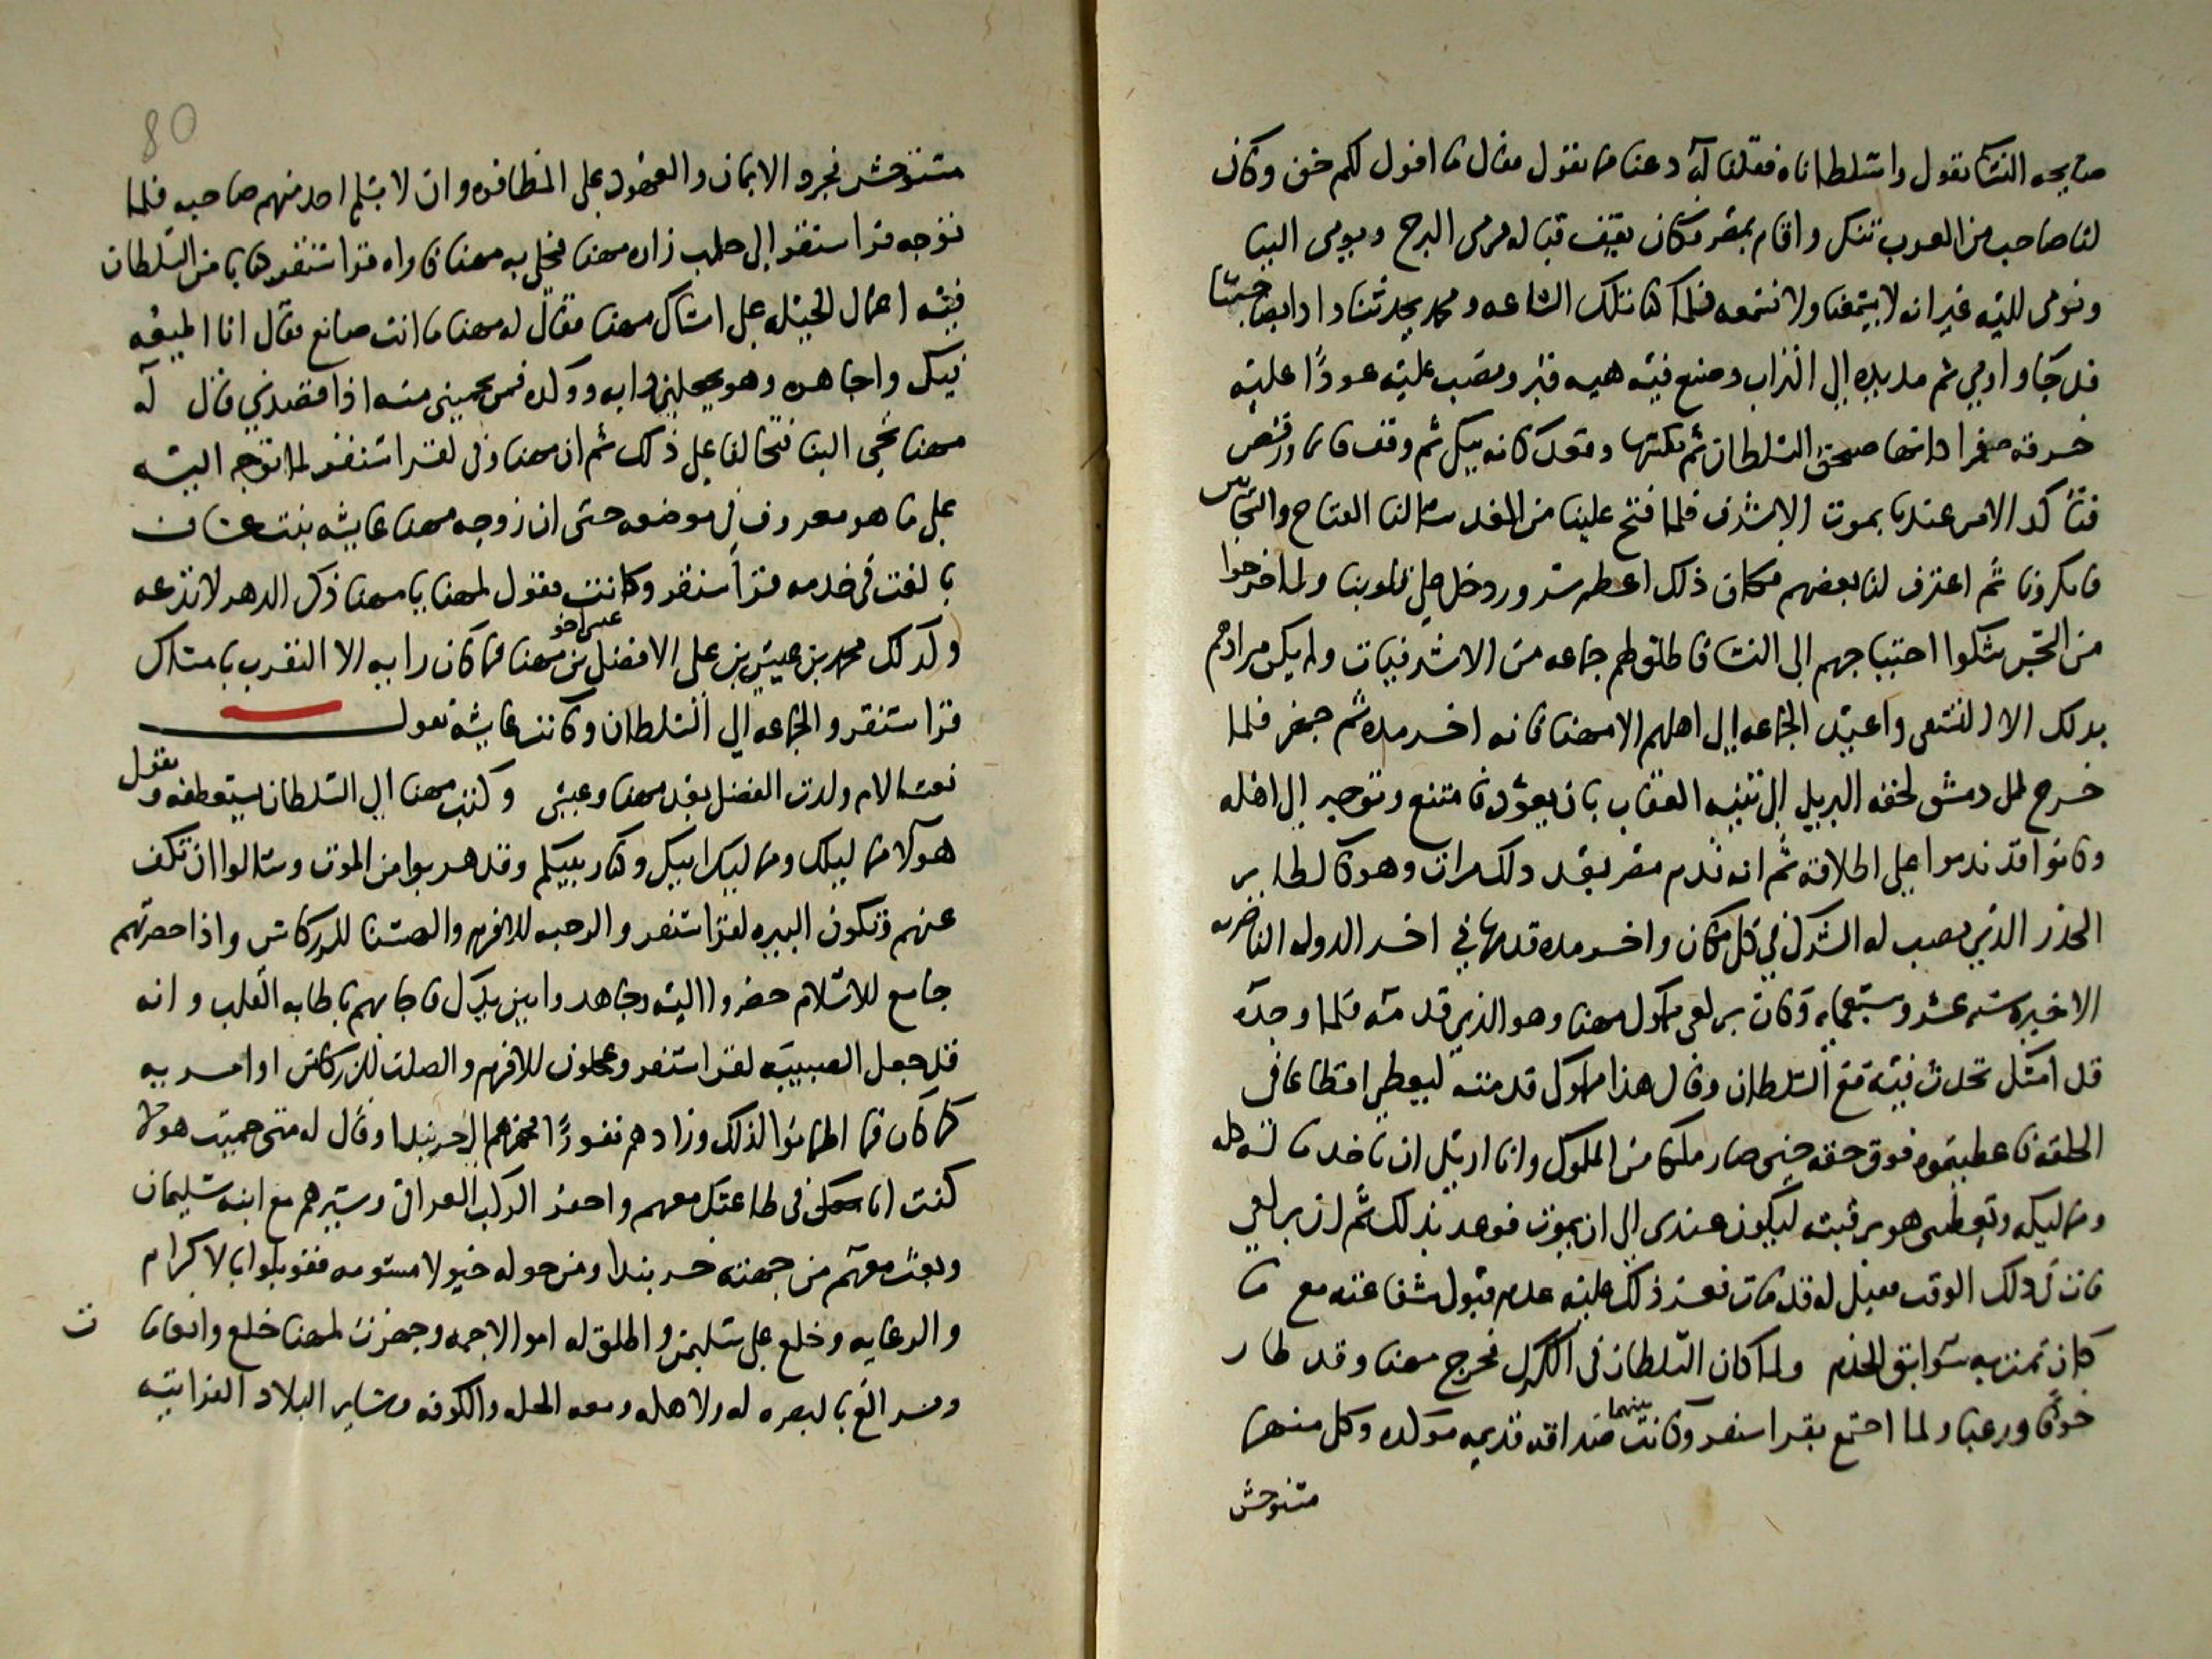 صايحه النسا تقول واسلطاناه فقلنا له دعنا مما تقول فقال ما اقول لكم خن وكان
لنا صاحب من العرب تنكر واقام بمصر فكان يقف قباله مرمى البرج ويومى الينا
ونومى لليه غير انه لا يسمعنا ولا نسمعه فلما كنا تلك الساعه ومحمد يحدثنا واذا بصاحبنا
قد جا واومي ثم مد يده الى التراب وصنع فيه هييه قبر ونصب عليه عودًا عليه
خرقه صفرا كانها صنجق السلطان ثم نكسها وقعد كانه يبكي ثم وقف قايما ورقص
فتاكد الامر عندنا بموت الاشرف فلما فتح علينا من الغد سالنا الفتاح والسجان
فانكرونا ثم اعترف لنا بعضهم فكان ذلك اعظم سرور دخل على قلوبنا ولما خرجوا
من الحبس شكوا احتياجهم الى النسا فاطلق لهم جماعه من الاشرفيات ولم يكن مرادهم
بدلك الا التشفي واعيد الجماعه الى اهلهم الا مهنا فانه اخر مده ثم جهز فلما
خرج لمل دمشق لحقه البريد الى ثنيه العقاب بان يعود فامتنع وتوجه الى اهله
وكانوا قد ندموا على اطلاقه ثم انه قدم مصر بعد دلك مرات وهو كالطاير
الحذر الذي نصب له الشرك في كل مكان واخر مده قدمها في اخر الدوله الناصريه
الاخيره سنه عشر وسبعمايه وكان برلغى مملوك مهنا وهو الذي قدمه فلما وجده
قد امسك تحدث فيه مع السلطان وقال هذا مملوكي قدمته ليعطي اقطاعا في
الحلقه فاعطيتموه فوق حقه حتى صار ملكا من الملوك وانا اريد ان تاخد ماله كله
ومماليكه وتعطى هو رقبته ليكون عندى الى ان يموت فوعد بذلك ثم ان برلغى
مات في دلك الوقت فقيل له قد مات فعز ذلك عليه عدم قبول شفاعته مع ما
كان يمت به سوابق الخدم ولما كان السلطان في الكرك فخرج مهنا وقد طار
خوفا ورعبا ولما اجتمع بقراسنقر وكانت بينهما صداقه قديمه موكده وكل منهما
متوحش
80
متوحش فجرد الايمان والعهود على المظافره وان لا يسلم احد منهم صاحبه فلما
توجه قراسنقر الى حلب زاره مهنا فخلى به مهنا فاراه قراسنقر كتابا من السلطان
فيه اعمال الحيله على امساك مهنا فقال له مهنا ما انت صانع فقال انا اطيعه
فيك واجاهره وهو يجعلني دابه ووكده فمن يحميني منه اذا قصدني قال له
مهنا تجي الينا فتحالفا على ذلك ثم ان مهنا وفى لقراسنقر لما توجه اليه
على ما هو معروف في موضعه حتى ان زوجه مهنا عايشه بنت عساف
بالغت في خدمه قراسنقر وكانت تقول لمهنا يا مهنا ذكر الدهر لا تدعه
وكدلك محمد بن عيسى بن على الافضل بن مهنا فما كان رايه الا التقرب بامساك
عيسى اخو
قراسنقر والجماعه الى السلطان وكانت عايشه تقول
نعم الام ولدت الفضل بعد مهنا وعيسى وكتب مهنا الى السلطان يستعطفه ويقول
هولا مماليكك ومماليك ابيك وكبار بيتكم وقد هربوا من الموت وسالوا ان تكف
عنهم وتكون البيره لقراسنقر والرحبه للافرم والبهسنا للزركاش واذا حصرتهم
جامع للاسلام حضروا اليه وجاهدوا بين يديك فاجابهم باطابه القلب وانه
قد جعل الصبيبيه لقراسنقر وعجلون للافرم والصلت للزركاش اوامر به
كما كان فما اطمانوا لذلك وزادهم نفورًا فجهزهم الى خربندا وقال له متى حميت هولا
كنت انا ممسك في طاعتك معهم واحفز الركب العراقي وسيرهم مع ابنه سليمان
وبعث معهم من جهته خربندا ومن حوله خيولا مسومه فقوبلوا بالاكرام
والرعايه وخلع على سليمن واطلق له اموالا جمه وجهزت لمهنا خلع وانعامات
ومراتع بالبصره له ولاهله ومعه الحله والكوفه وساير البلاد الفراتيه